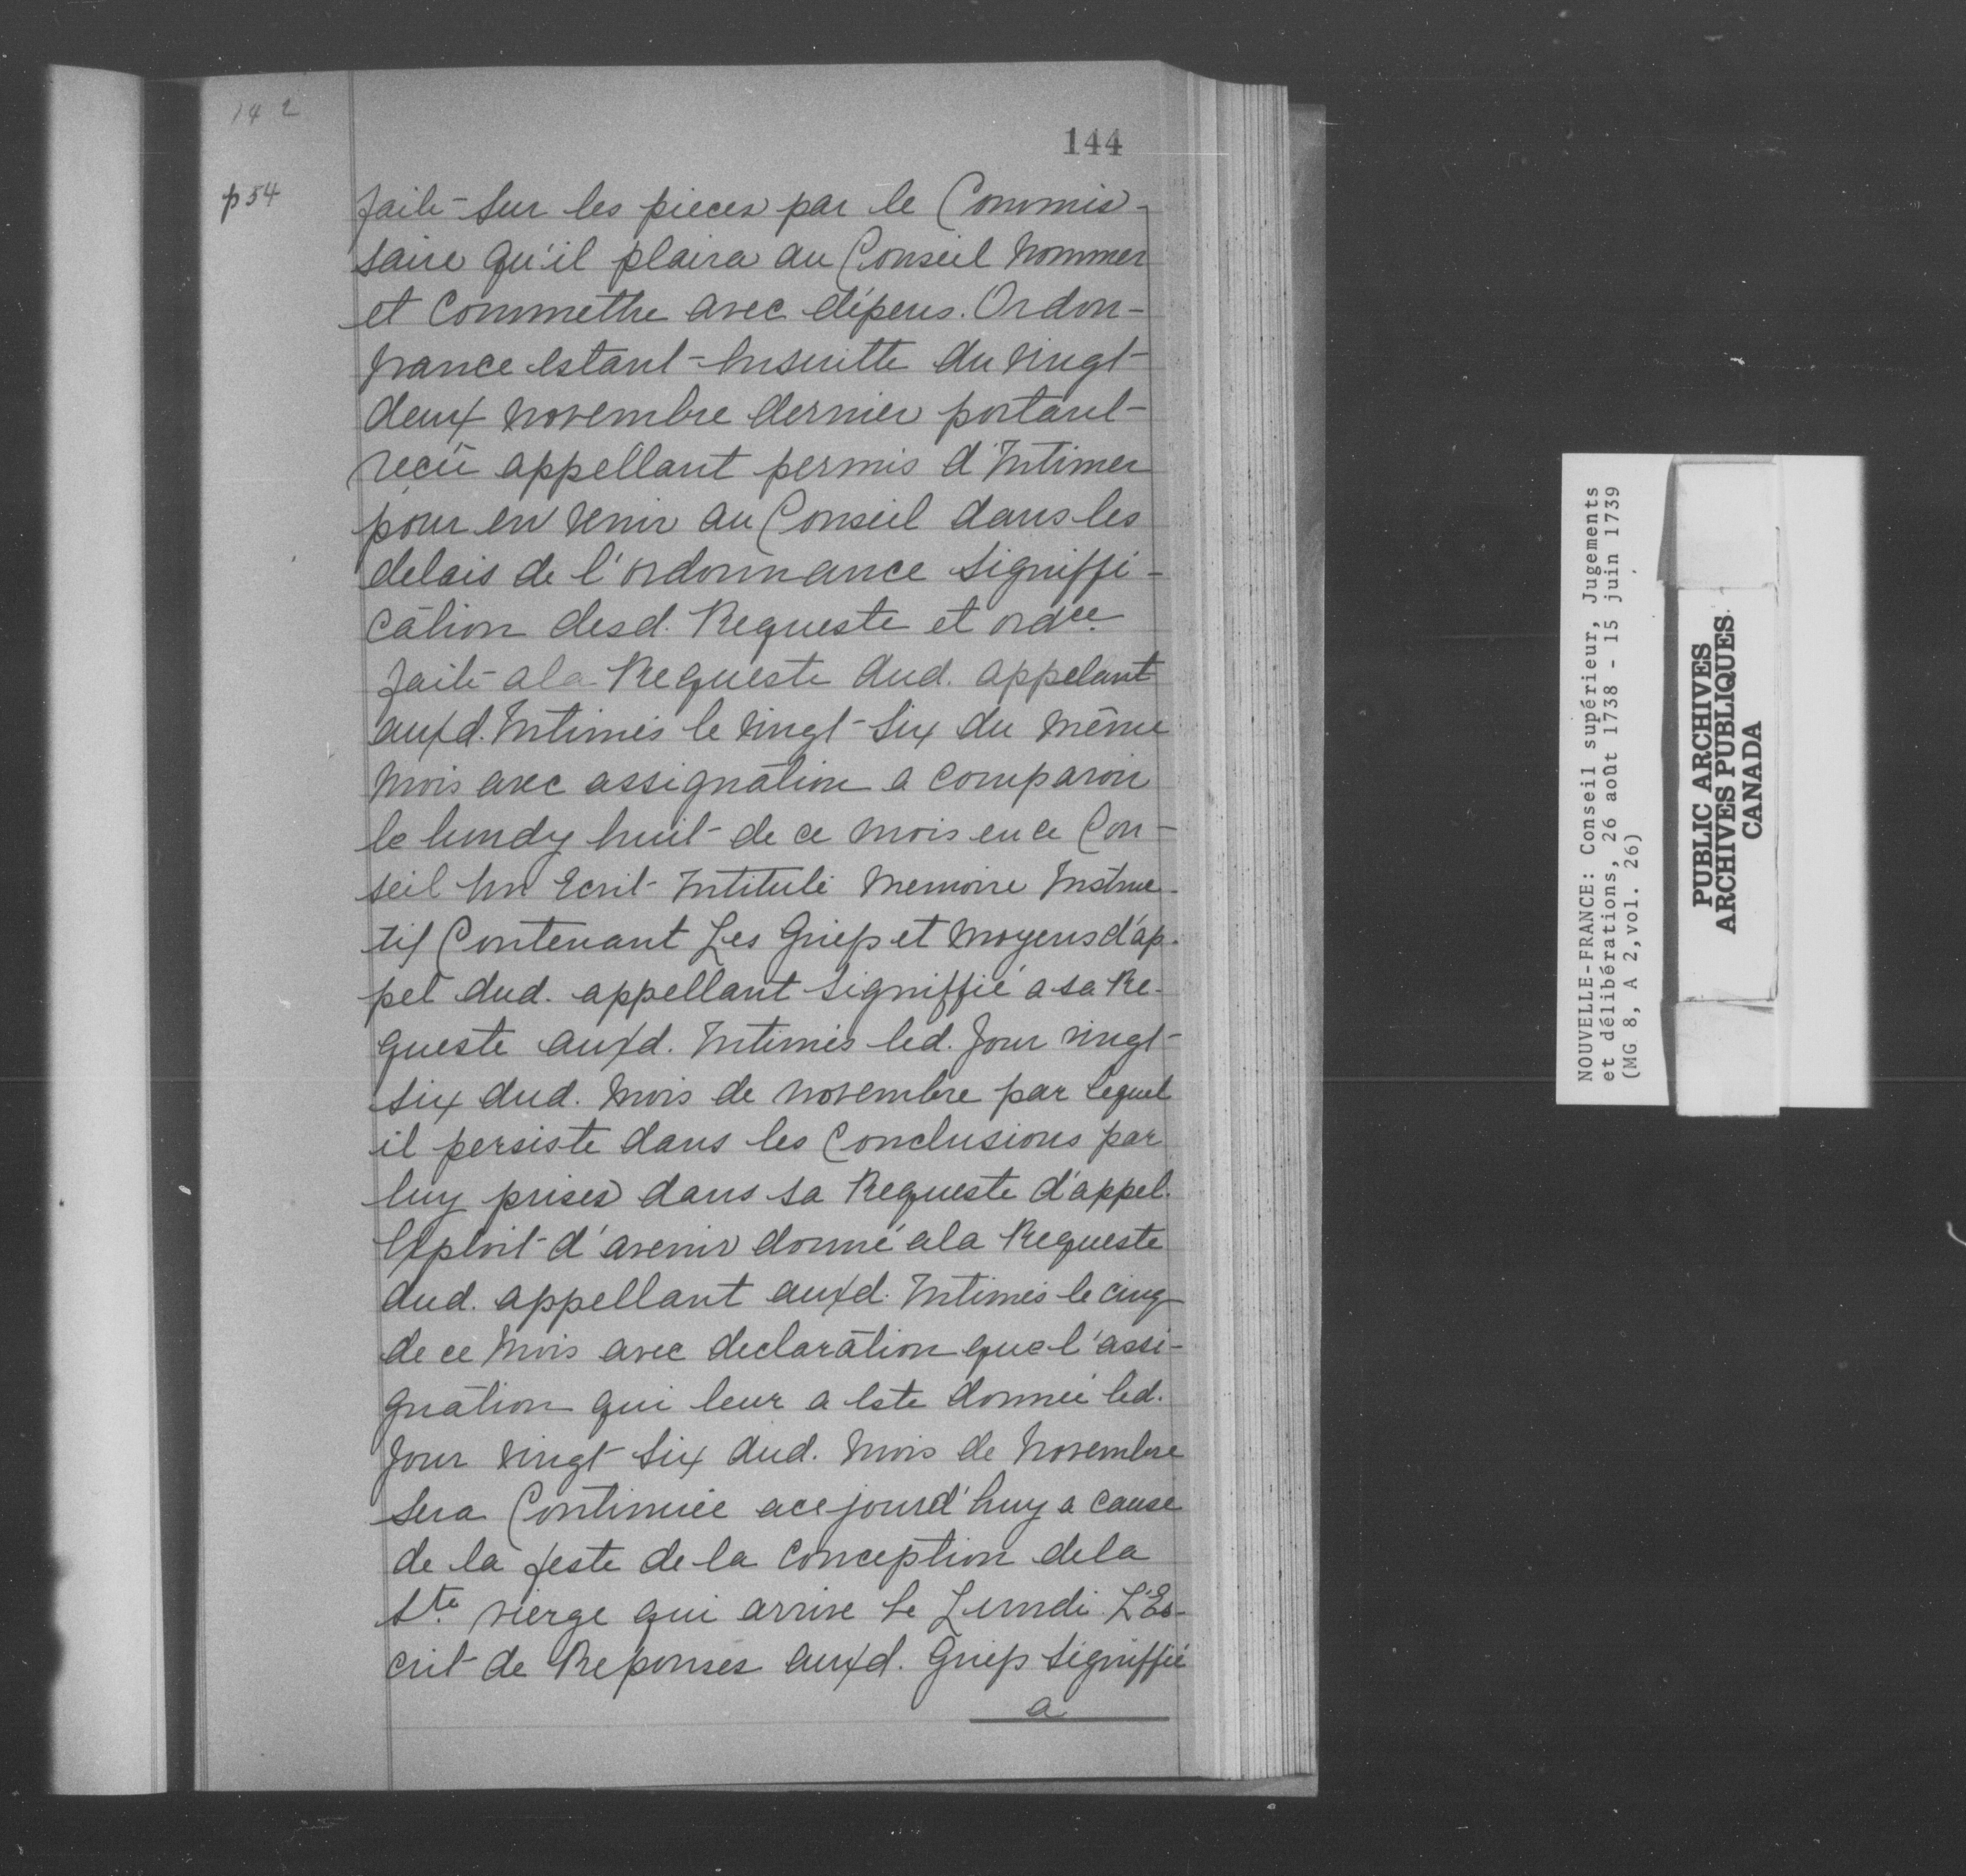 142
144
p 54
faite sur les pieces par le Commis-
saire qu'il plaira au Conseil Nommer
et Commettre avec dépens. Ordon-
nance estant Ensuitte du vingt
deux novembre dernier portant
reçu appellant permis d'Intimer
pour en venir au Conseil dans les
delais de l'ordonnance Signiffi-
cātion desd. Requeste et ordce
faite a la Requeste dud. appelant
auxd. Intimés le vingt-Six du même
mois avec assignātion a comparoir
le lundy huit de ce mois en ce Con-
seil Un Ecrit Intitulé Memoire Instruc-
tif Contenant Les Griefs et Moyens d'ap-
pel dud. appellant Signiffié a sa Re-
queste auxd. Intimés led. Jour vingt-
Six dud. Mois de novembre par lequel
il persiste dans les Conclusions par
luy prises dans sa Requeste d'appel.
Exploit d'avenir donné a la Requeste
dud. appellant auxd. Intimés le cinq
de ce Mois avec declarātion que l'assi-
gnātion qui leur a esté donnée led.
Jour vingt Six dud. Mois de Novembre
Sera Continuée a ce jourd'huy a cause
de la feste de la Conception de la
Ste vierge qui arrive le Lundi. L'Es-
crit de Reponses auxd. Griefs Signiffié
a
NOUVELLE-FRANCE: Conseil supérieur, Jugements
et délibérations, 26 août 1738 - 15 juin 1739
(MG 8, A 2,vol. 26)
PUBLIC ARCHIVES
ARCHIVES PUBLIQUES
CANADA